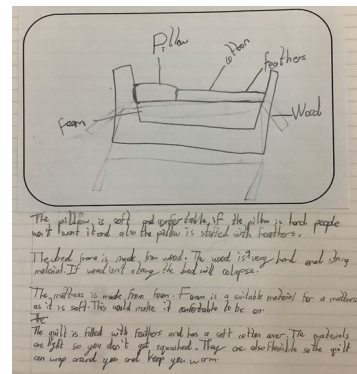 Pillow
cotton
feathers
foam
Wood
The pillow is soft and comfortable, if the pillow is hard people
won't want it and also the pillow is stuffed with feathers.
The bed frame is made from wood. The wood is very hard and strong
material. If wood isn't strong the bed will colapse.
The mattress is made from foam. Foam is a suitable material for a mattress
as it is soft. This would make it comfortable to be on.
The quilt is filled with feathers and has a soft cotton cover. The materials
are light so you don't get squashed. They are also flexible so the quilt
can wrap around you and keep you warm.